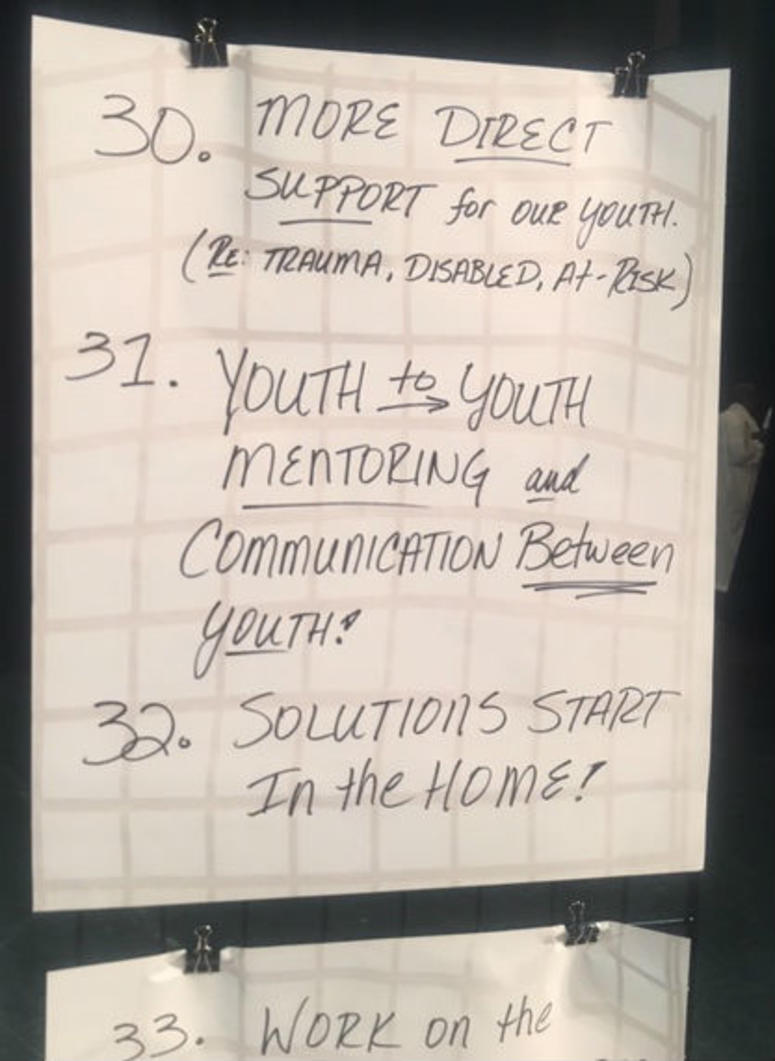 30. MORE DIRECT
SUPPORT for OUR YOUTH.
(RE: TRAUMA, DISABLED, At-RISK)
31. YOUTH to → YOUTH
MENTORING and
COMMUNICATION Between
YOUTH!
32. SOLUTIONS START
In the HOME!
33. WORK on the